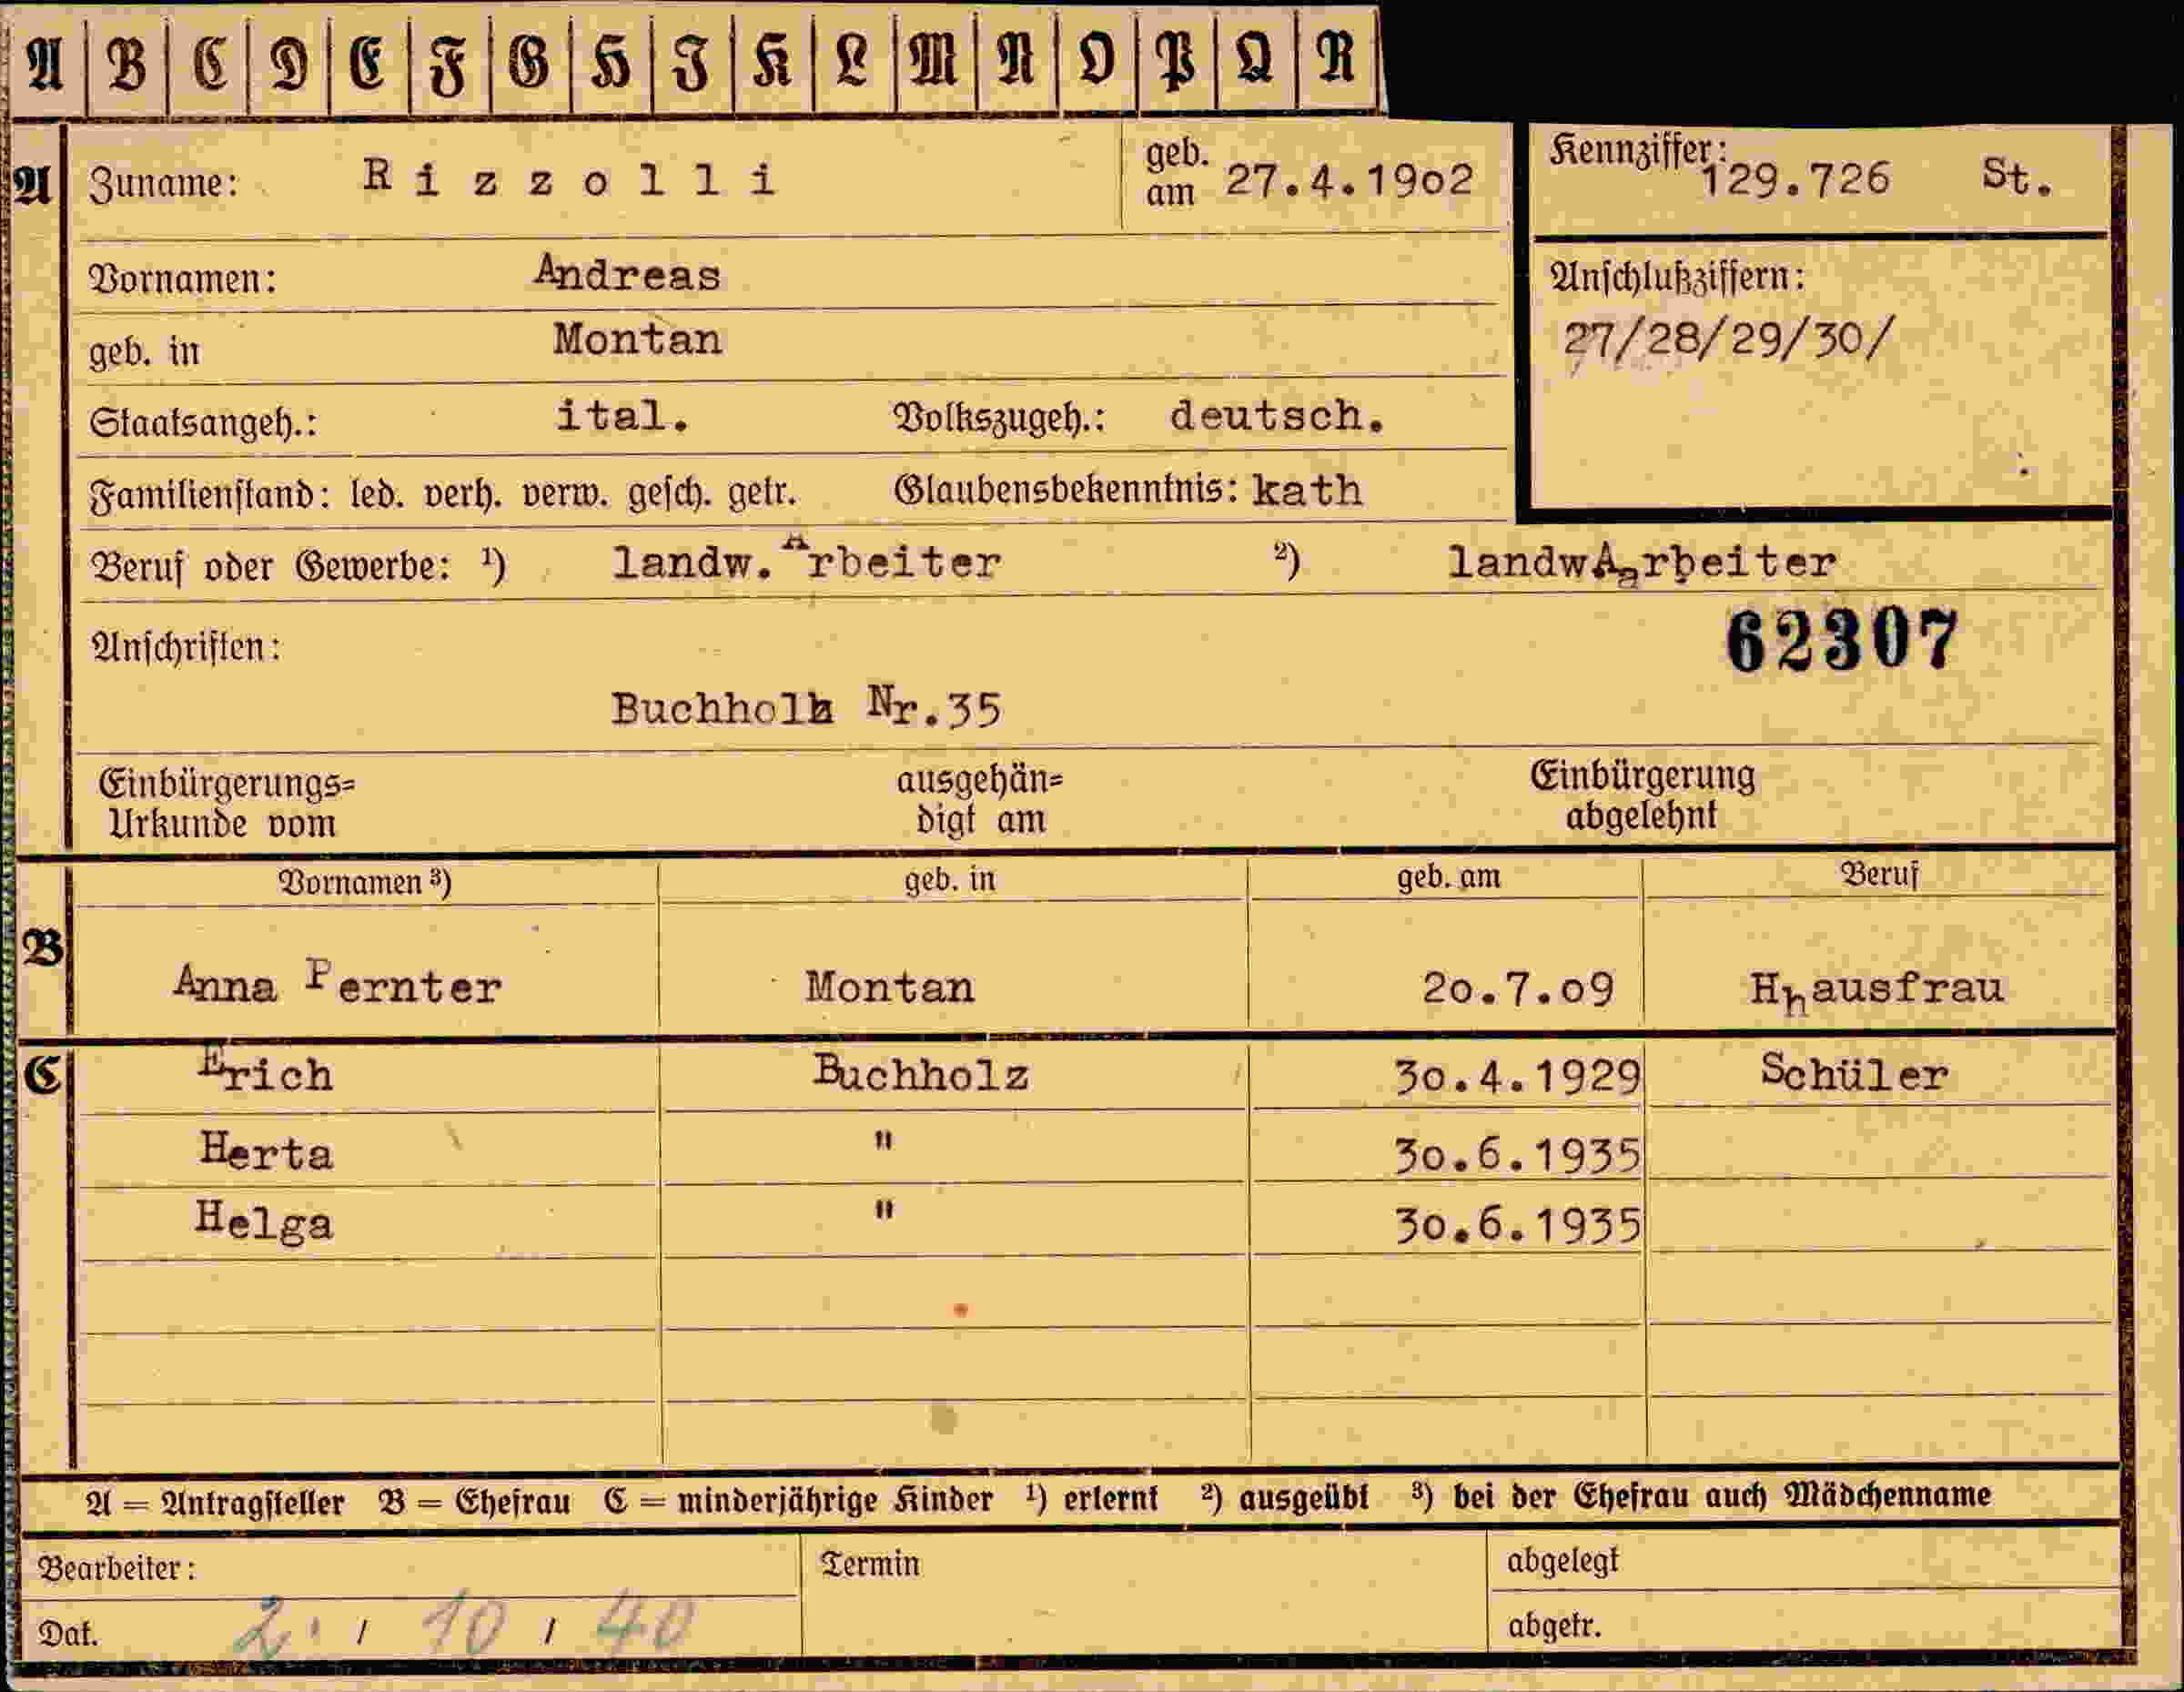 A B C D E F G H J K L M N O P Q R
A Zuname: Rizzolli geb. am 27.4.1902 Kennziffer: 129.726 St.
Vornamen: Andreas Anschlußziffern:
geb. in Montan 27/28/29/30/
Staatsangeh.: ital. Volkszugeh.: deutsch.
Familienstand: led. verh. verw. gesch. getr. Glaubensbekenntnis: kath
Beruf oder Gewerbe: 1) landw. Arbeiter 2) landwAarbeiter
Anschriften: 62307
Buchholz Nr.35
Einbürgerungs= ausgehän= Einbürgerung
Urkunde vom digt am abgelehnt
Vornamen 3) geb. in geb. am Beruf
B Anna Pernter Montan 20.7.09 Hhausfrau
C Erich Buchholz 30.4.1929 Schüler
Herta " 30.6.1935
Helga " 30.6.1935
A = Antragsteller B = Ehefrau C = minderjährige Kinder 1) erlernt 2) ausgeübt 3) bei der Ehefrau auch Mädchenname
Bearbeiter: Termin abgelegt
Dat. 2. / 10 / 40 abgetr.